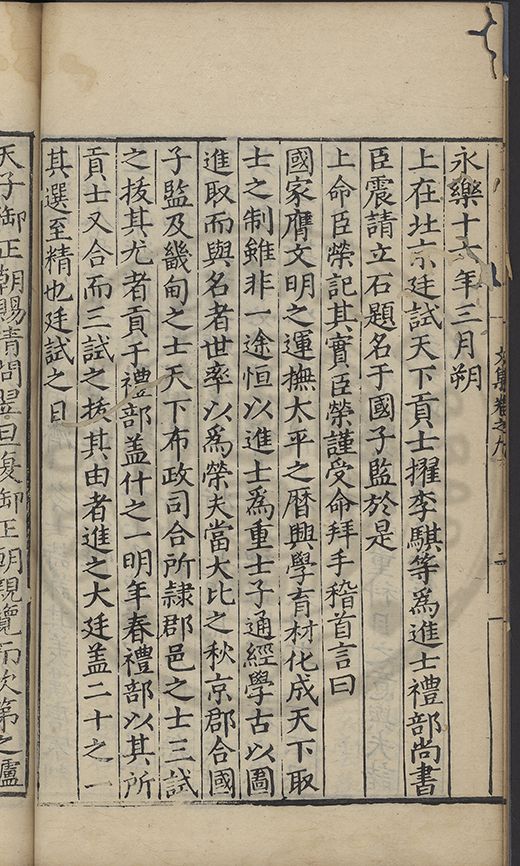 永樂十六年三月朔
上在北京廷試天下貢士擢李騏等爲進士禮部尚書
臣震請立石題名于國子監於是
上命臣榮記其實臣榮謹受命拜手稽首言曰
國家膺文明之運撫太平之曆興學育材化成天下取
士之制雖非一途恒以進士爲重士子通經學古以圖
進取而與名者世率以爲榮夫當大比之秋京郡合國
子監及畿甸之士天下布政司合所隷郡邑之士三試
之拔其尤者貢于禮部盖什之一明年春禮部以其所
貢士又合而三試之拔其由者進之大廷盖二十之一
其選至精也廷試之日
天子御正朝賜清問翌旦復御正朝親覽而次第之臚
文集卷之九
二